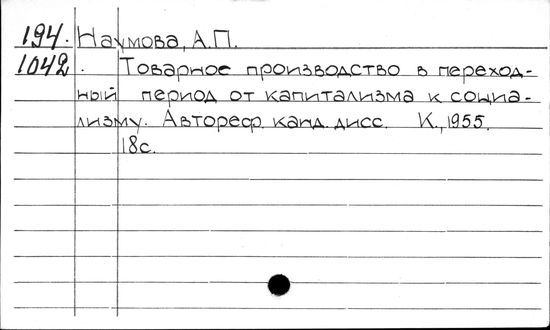 194. Наумова, А.П.
1042. Товарное производство в переход-
ный период от капитализма к социа-
лизму. Автореф. канд. дисс. К., 1955.
18с.